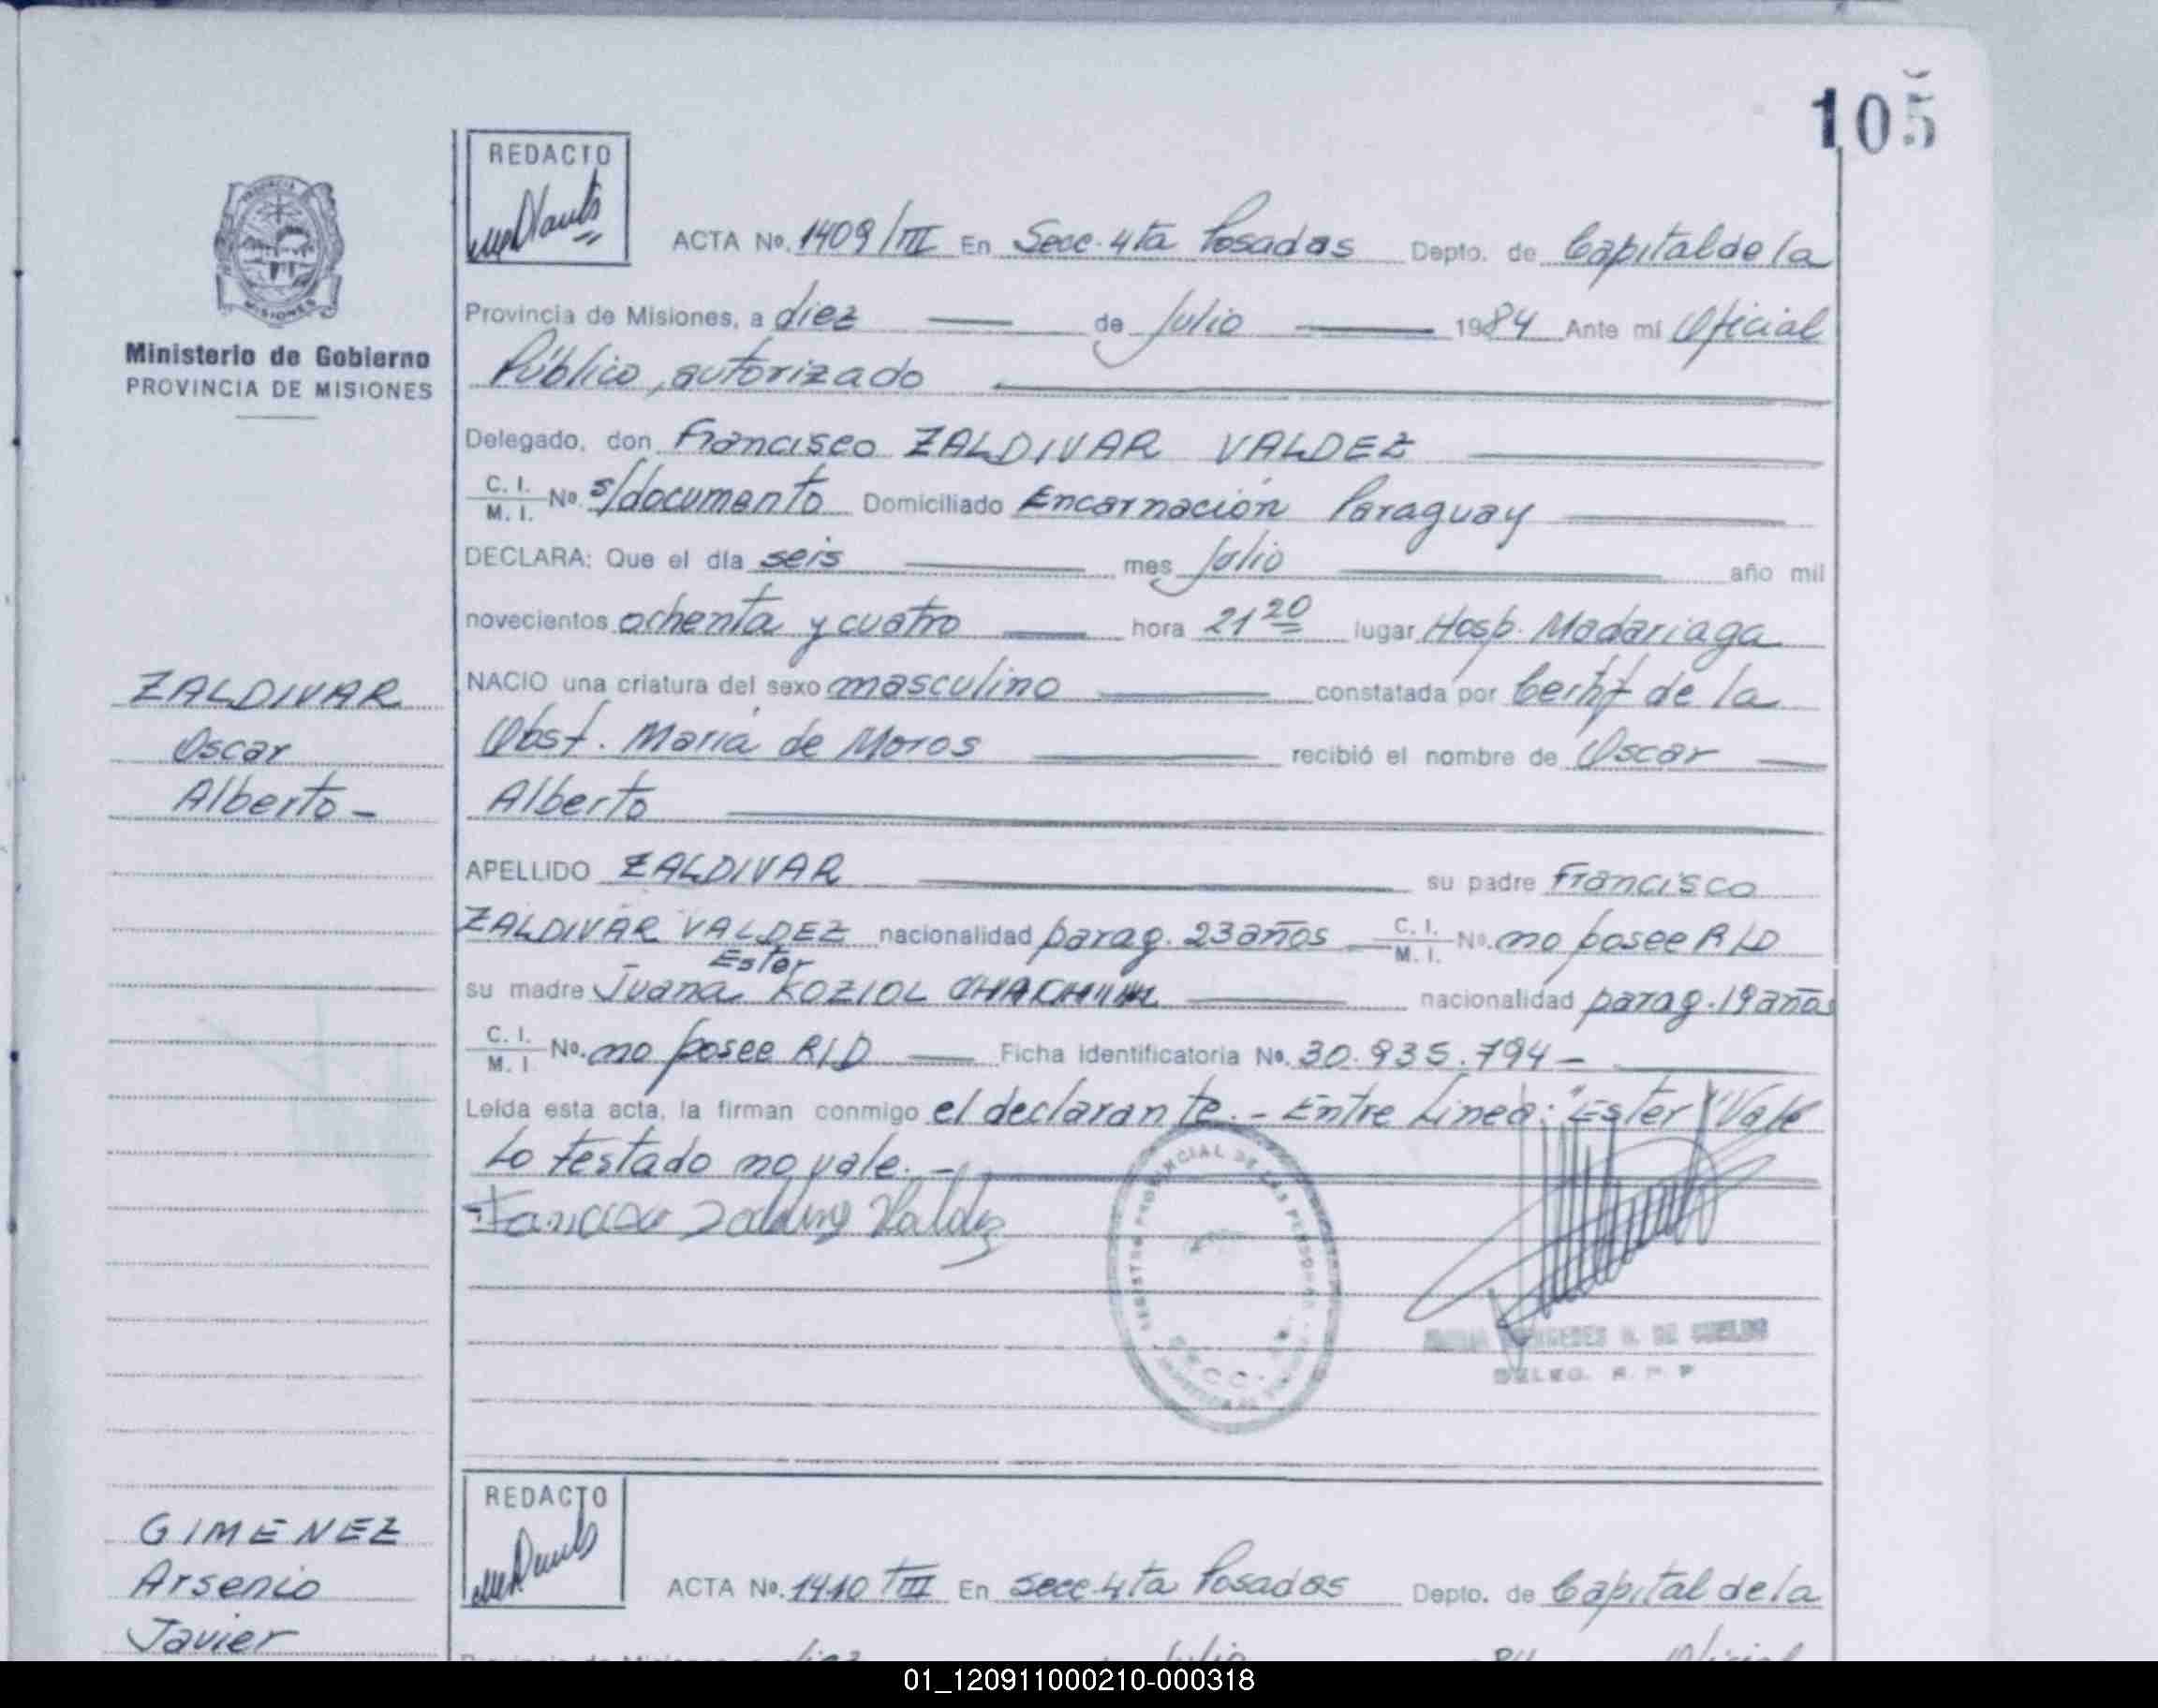 105
REDACTO
ACTA No. 1409/III En Secc. 4ta Posadas Depto. de Capital de la
PROVINCIA
MISIONES
Provincia de Misiones, a diez de Julio 1984 Ante mí Oficial
Ministerio de Gobierno
PROVINCIA DE MISIONES
Público, autorizado
Delegado, don Francisco ZALDIVAR VALDEZ
C. I. M. I. No. s/documento Domiciliado Encarnación Paraguay
DECLARA: Que el día seis mes Julio año mil
novecientos ochenta y cuatro hora 21 20 lugar Hosp. Madariaga
ZALDIVAR
Oscar
Alberto -
NACIO una criatura del sexo masculino constatada por Certif de la
Obst. María de Moros recibió el nombre de Oscar
Alberto
APELLIDO ZALDIVAR su padre Francisco
ZALDIVAR VALDEZ nacionalidad parag. 23 años C. I. M. I. No. no posee R/D
Ester
su madre Juana KOZIOL nacionalidad parag. 19 años
C. I. M. I No. no posee R/D Ficha Identificatoria No. 30.935.794 -
Leída esta acta, la firman conmigo el declarante. - Entre Linea: "Ester" Vale
Lo testado no vale. -
Valdez
REGISTRO PROVINCIAL DE LAS PERSONAS
DELEG. R. P. P
REDACTO
GIMENEZ
Arsenio
Javier
ACTA No. 1410 III En Secc 4ta Posadas Depto. de Capital de la
Provincia de Misiones, a diez Julio 84 Oficial
01_120911000210-000318